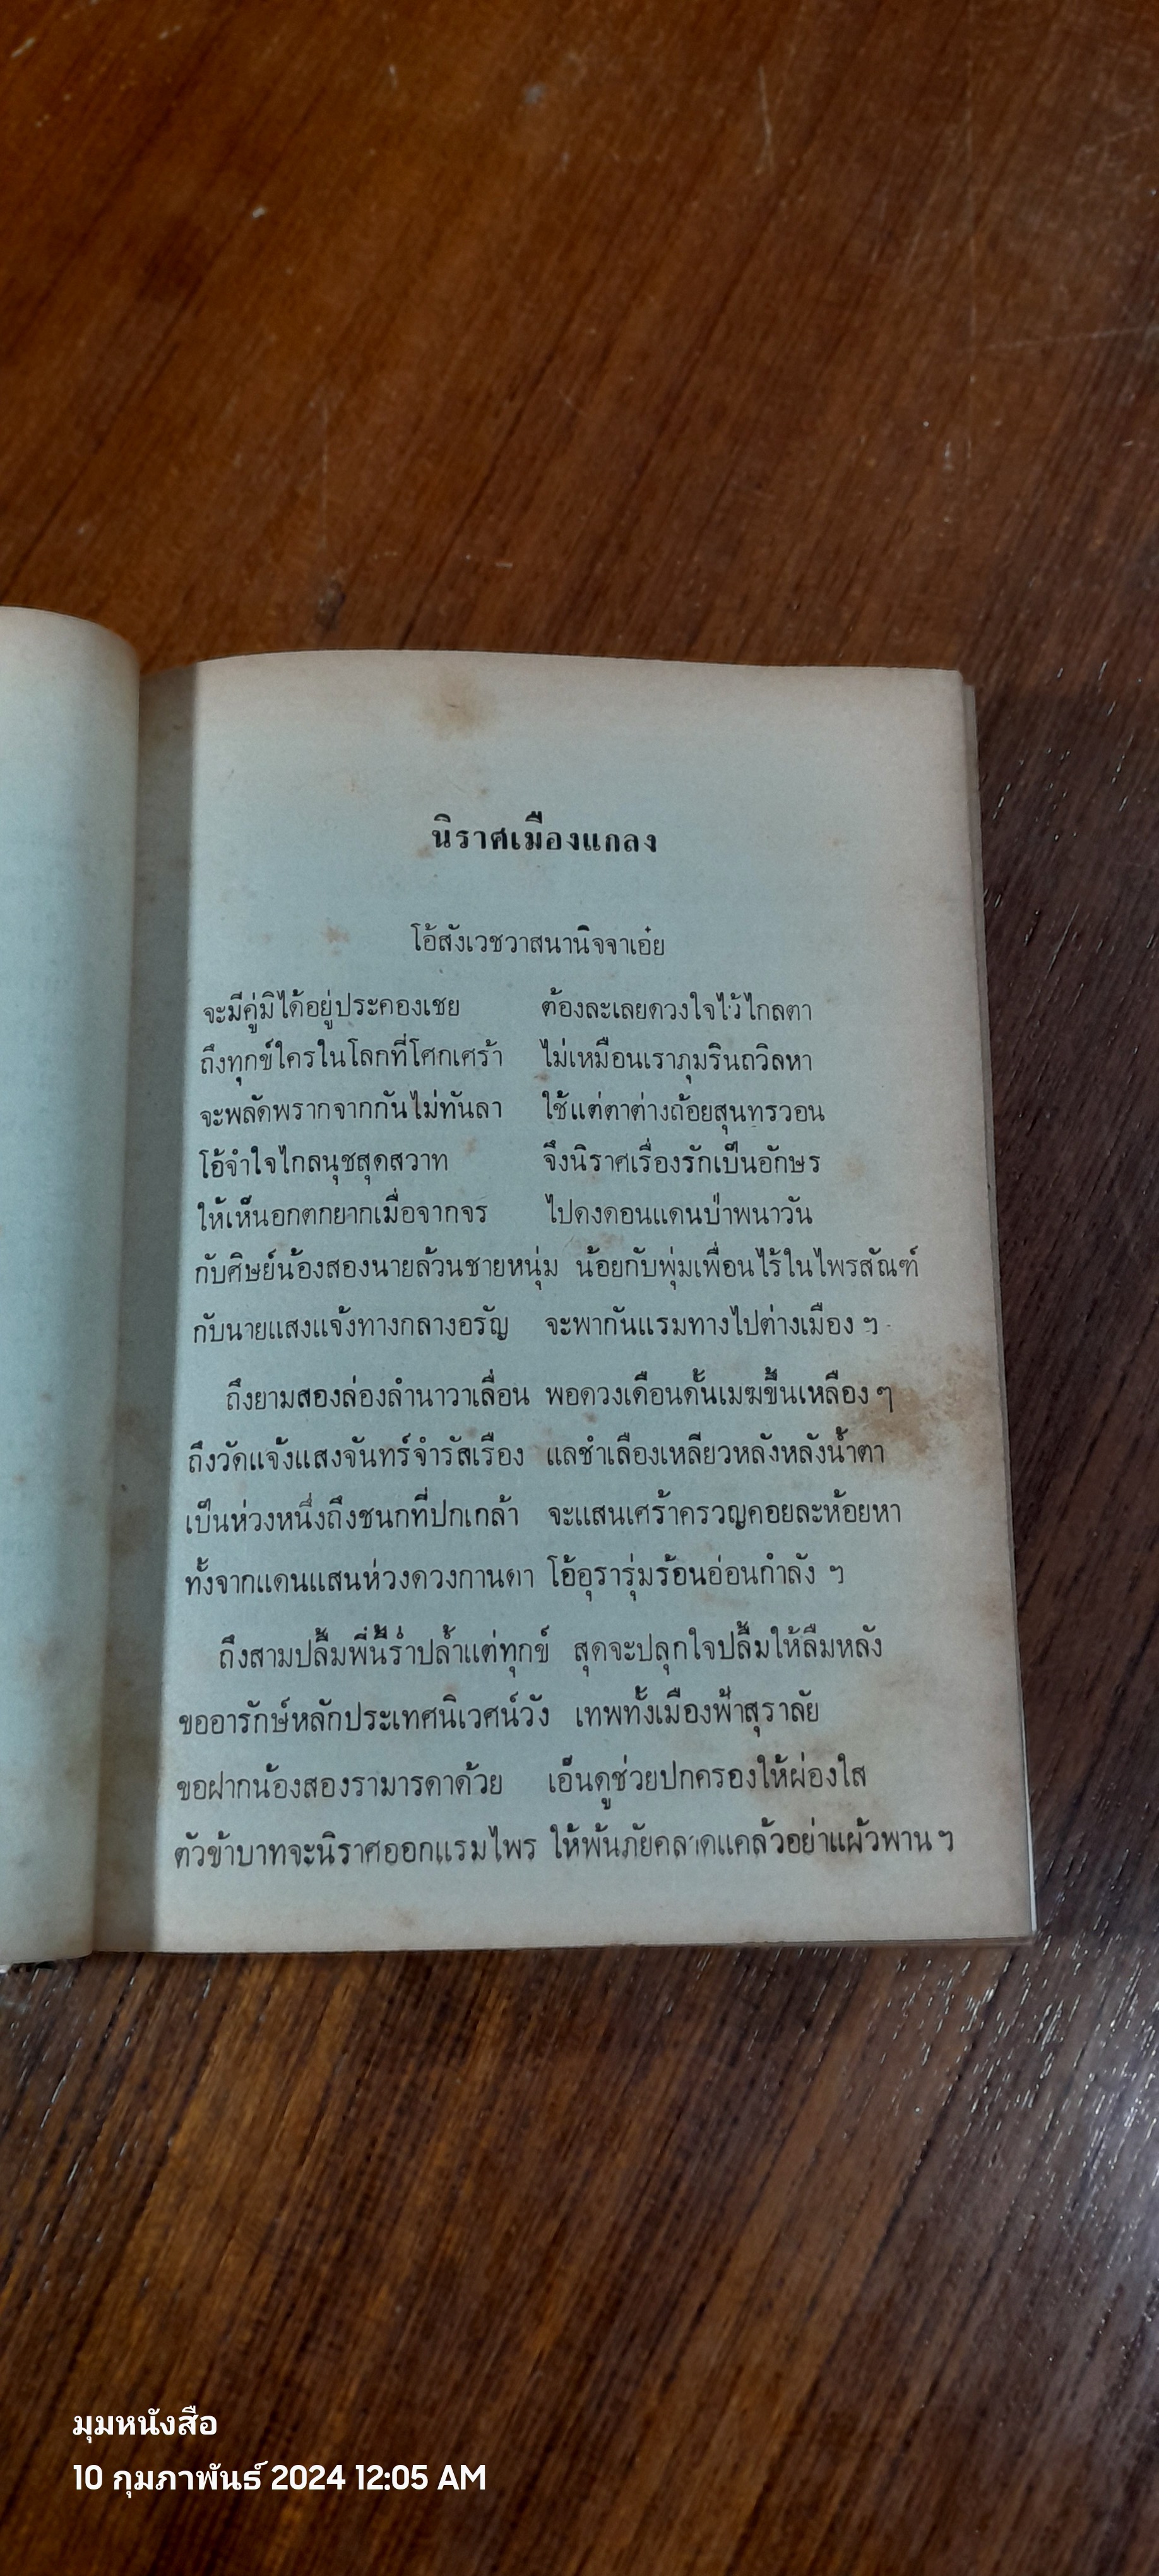 นิราศเมืองแกลง
โอ้สังเวชวาสนานิจจาเอ๋ย
จะมีคู่มิได้อยู่ประคองเชย ต้องละเลยดวงใจไว้ไกลตา
ถึงทุกข์ใครในโลกที่โศกเศร้า ไม่เหมือนเราภุมรินถวิลหา
จะพลัดพรากจากกันไม่ทันลา ใช้แต่ตาต่างถ้อยสุนทรวอน
โอ้จำใจไกลนุชสุดสวาท จึงนิราศเรื่องรักเป็นอักษร
ให้เห็นอกตกยากเมื่อจากจร ไปดงดอนแดนป่าพนาวัน
กับศิษย์น้องสองนายล้วนชายหนุ่ม น้อยกับพุ่มเพื่อนไร้ในไพรสัณฑ์
กับนายแสงแจ้งทางกลางอรัญ จะพากันแรมทางไปต่างเมือง ฯ
ถึงยามสองล่องลำนาวาเลื่อน พอดวงเดือนดั้นเมฆขึ้นเหลือง ๆ
ถึงวัดแจ้งแสงจันทร์จำรัสเรือง แลชำเลืองเหลียวหลังหลั่งน้ำตา
เป็นห่วงหนึ่งถึงชนกที่ปกเกล้า จะแสนเศร้าครวญคอยละห้อยหา
ทั้งจากแดนแสนห่วงดวงกานดา โอ้อุรารุ่มร้อนอ่อนกำลัง ฯ
ถึงสามปลื้มพี่นี้ร่ำปล้ำแต่ทุกข์ สุดจะปลุกใจปลื้มให้ลืมหลัง
ขออารักษ์หลักประเทศนิเวศน์วัง เทพทั้งเมืองฟ้าสุราลัย
ขอฝากน้องสองรามารดาด้วย เอ็นดูช่วยปกครองให้ผ่องใส
ตัวข้าบาทจะนิราศออกแรมไพร ให้พ้นภัยคลาดแคล้วอย่าแผ้วพาน ฯ
มุมหนังสือ
10 กุมภาพันธ์ 2024 12:05 AM